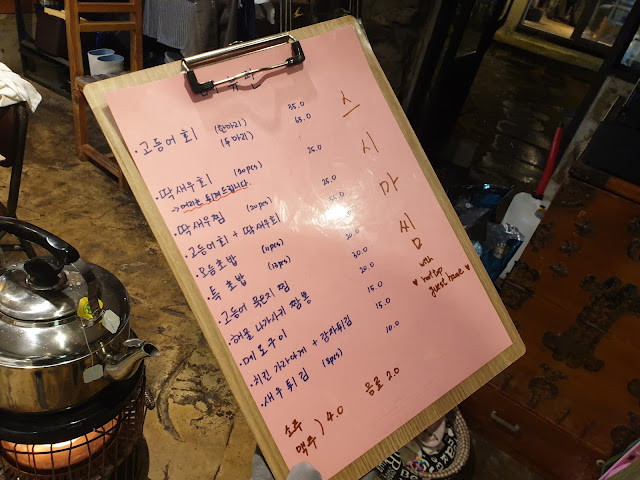 ·고등어 회 (한마리) 35.0
(두마리) 65.0
·딱새우회 (20pcs) 25.0
→머리는 튀겨드립니다.
·딱새우찜 (20pcs) 25.0
·고등어회 + 딱새우회
·모듬초밥 (11pcs)
·특초밥 (12pcs) 20.0
·고등어 묵은지 찜 30.0
·해물 나가사키 짬뽕 20.0
·메로구이 15.0
·치킨 가라아게 + 감자튀김 15.0
·새우튀김 (5pcs) 10.0
소주
맥주 ) 4.0 음료 2.0
스
시
마
씸
with
♥ rooftop
guest house ♥